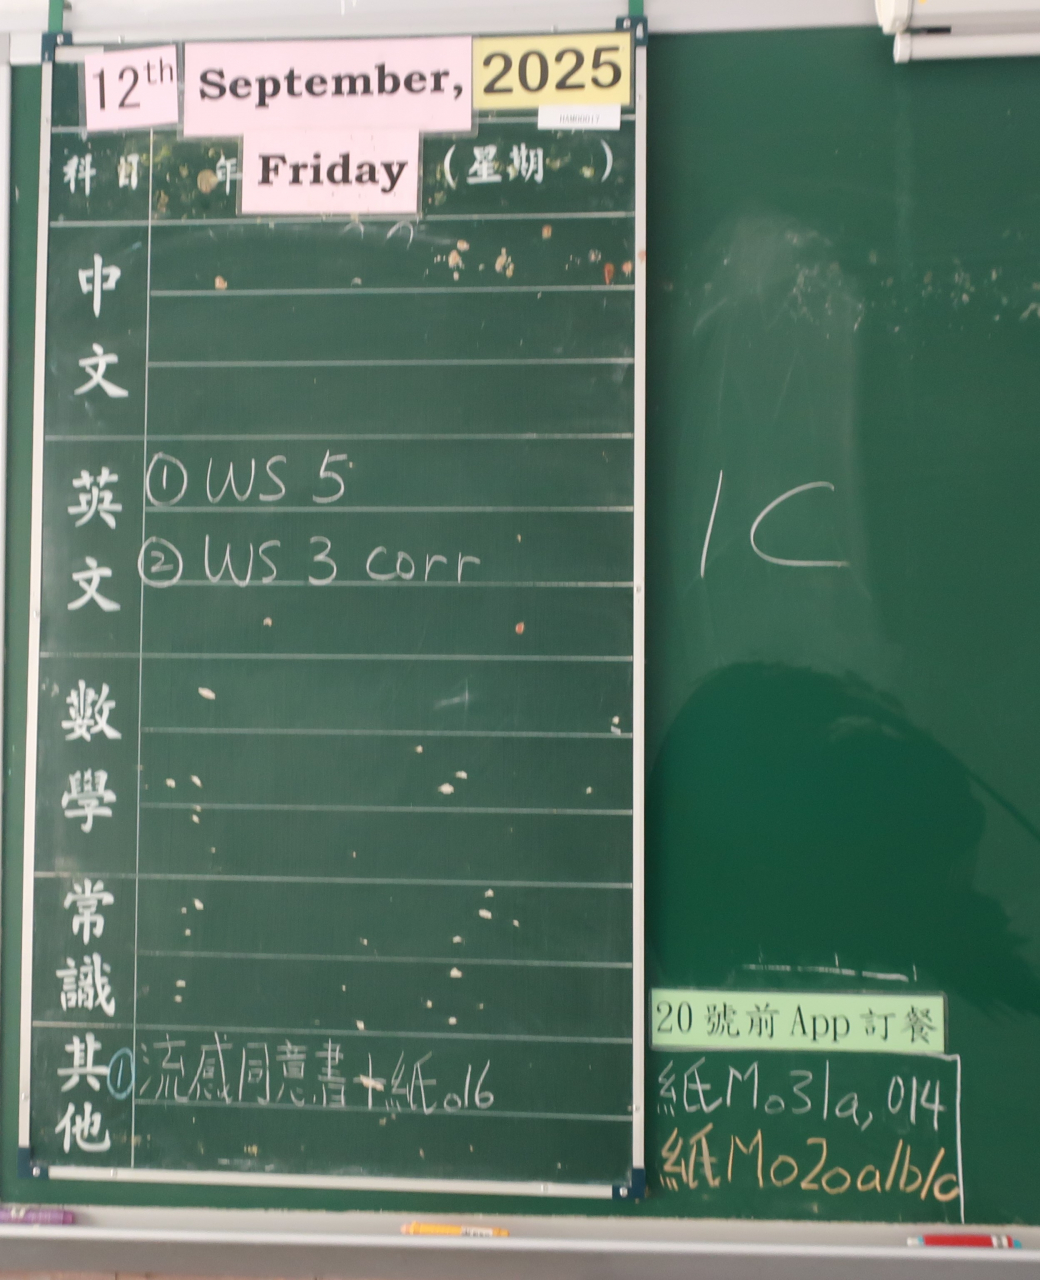 12th September, 2025
科目 年 Friday (星期 )
中文
英文
① WS 5
② WS 3 corr
1C
數學
常識
其他
① 流感同意書+紙016
20號前App訂餐
紙M031a, 014
紙M020a/b/c